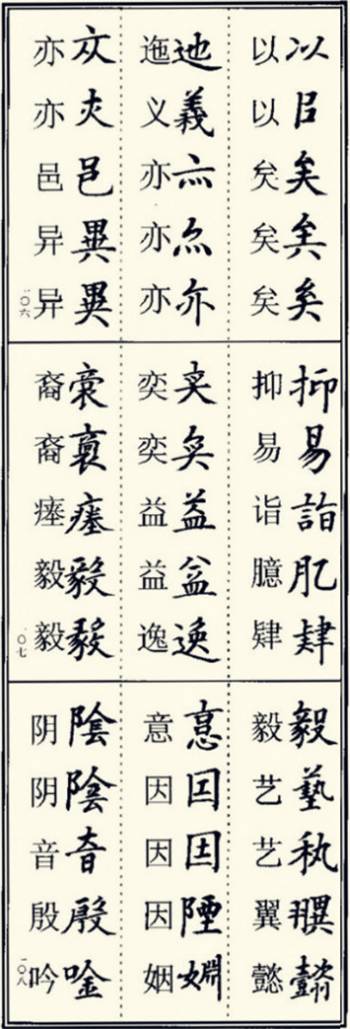 以㠯矣
以以矣矣矣
迆義
迤义亦亦亦
邑異異
亦亦邑异异
一〇六
抑易詣肊肄
抑易诣臆肄
益益逸
奕奕益益逸
裔毅毅
裔裔瘗毅毅
一〇七
毅藝秇
毅艺艺翼懿
意囙因陻婣
意因因因姻
陰陰音殷唫
阴阴音殷吟
一〇八